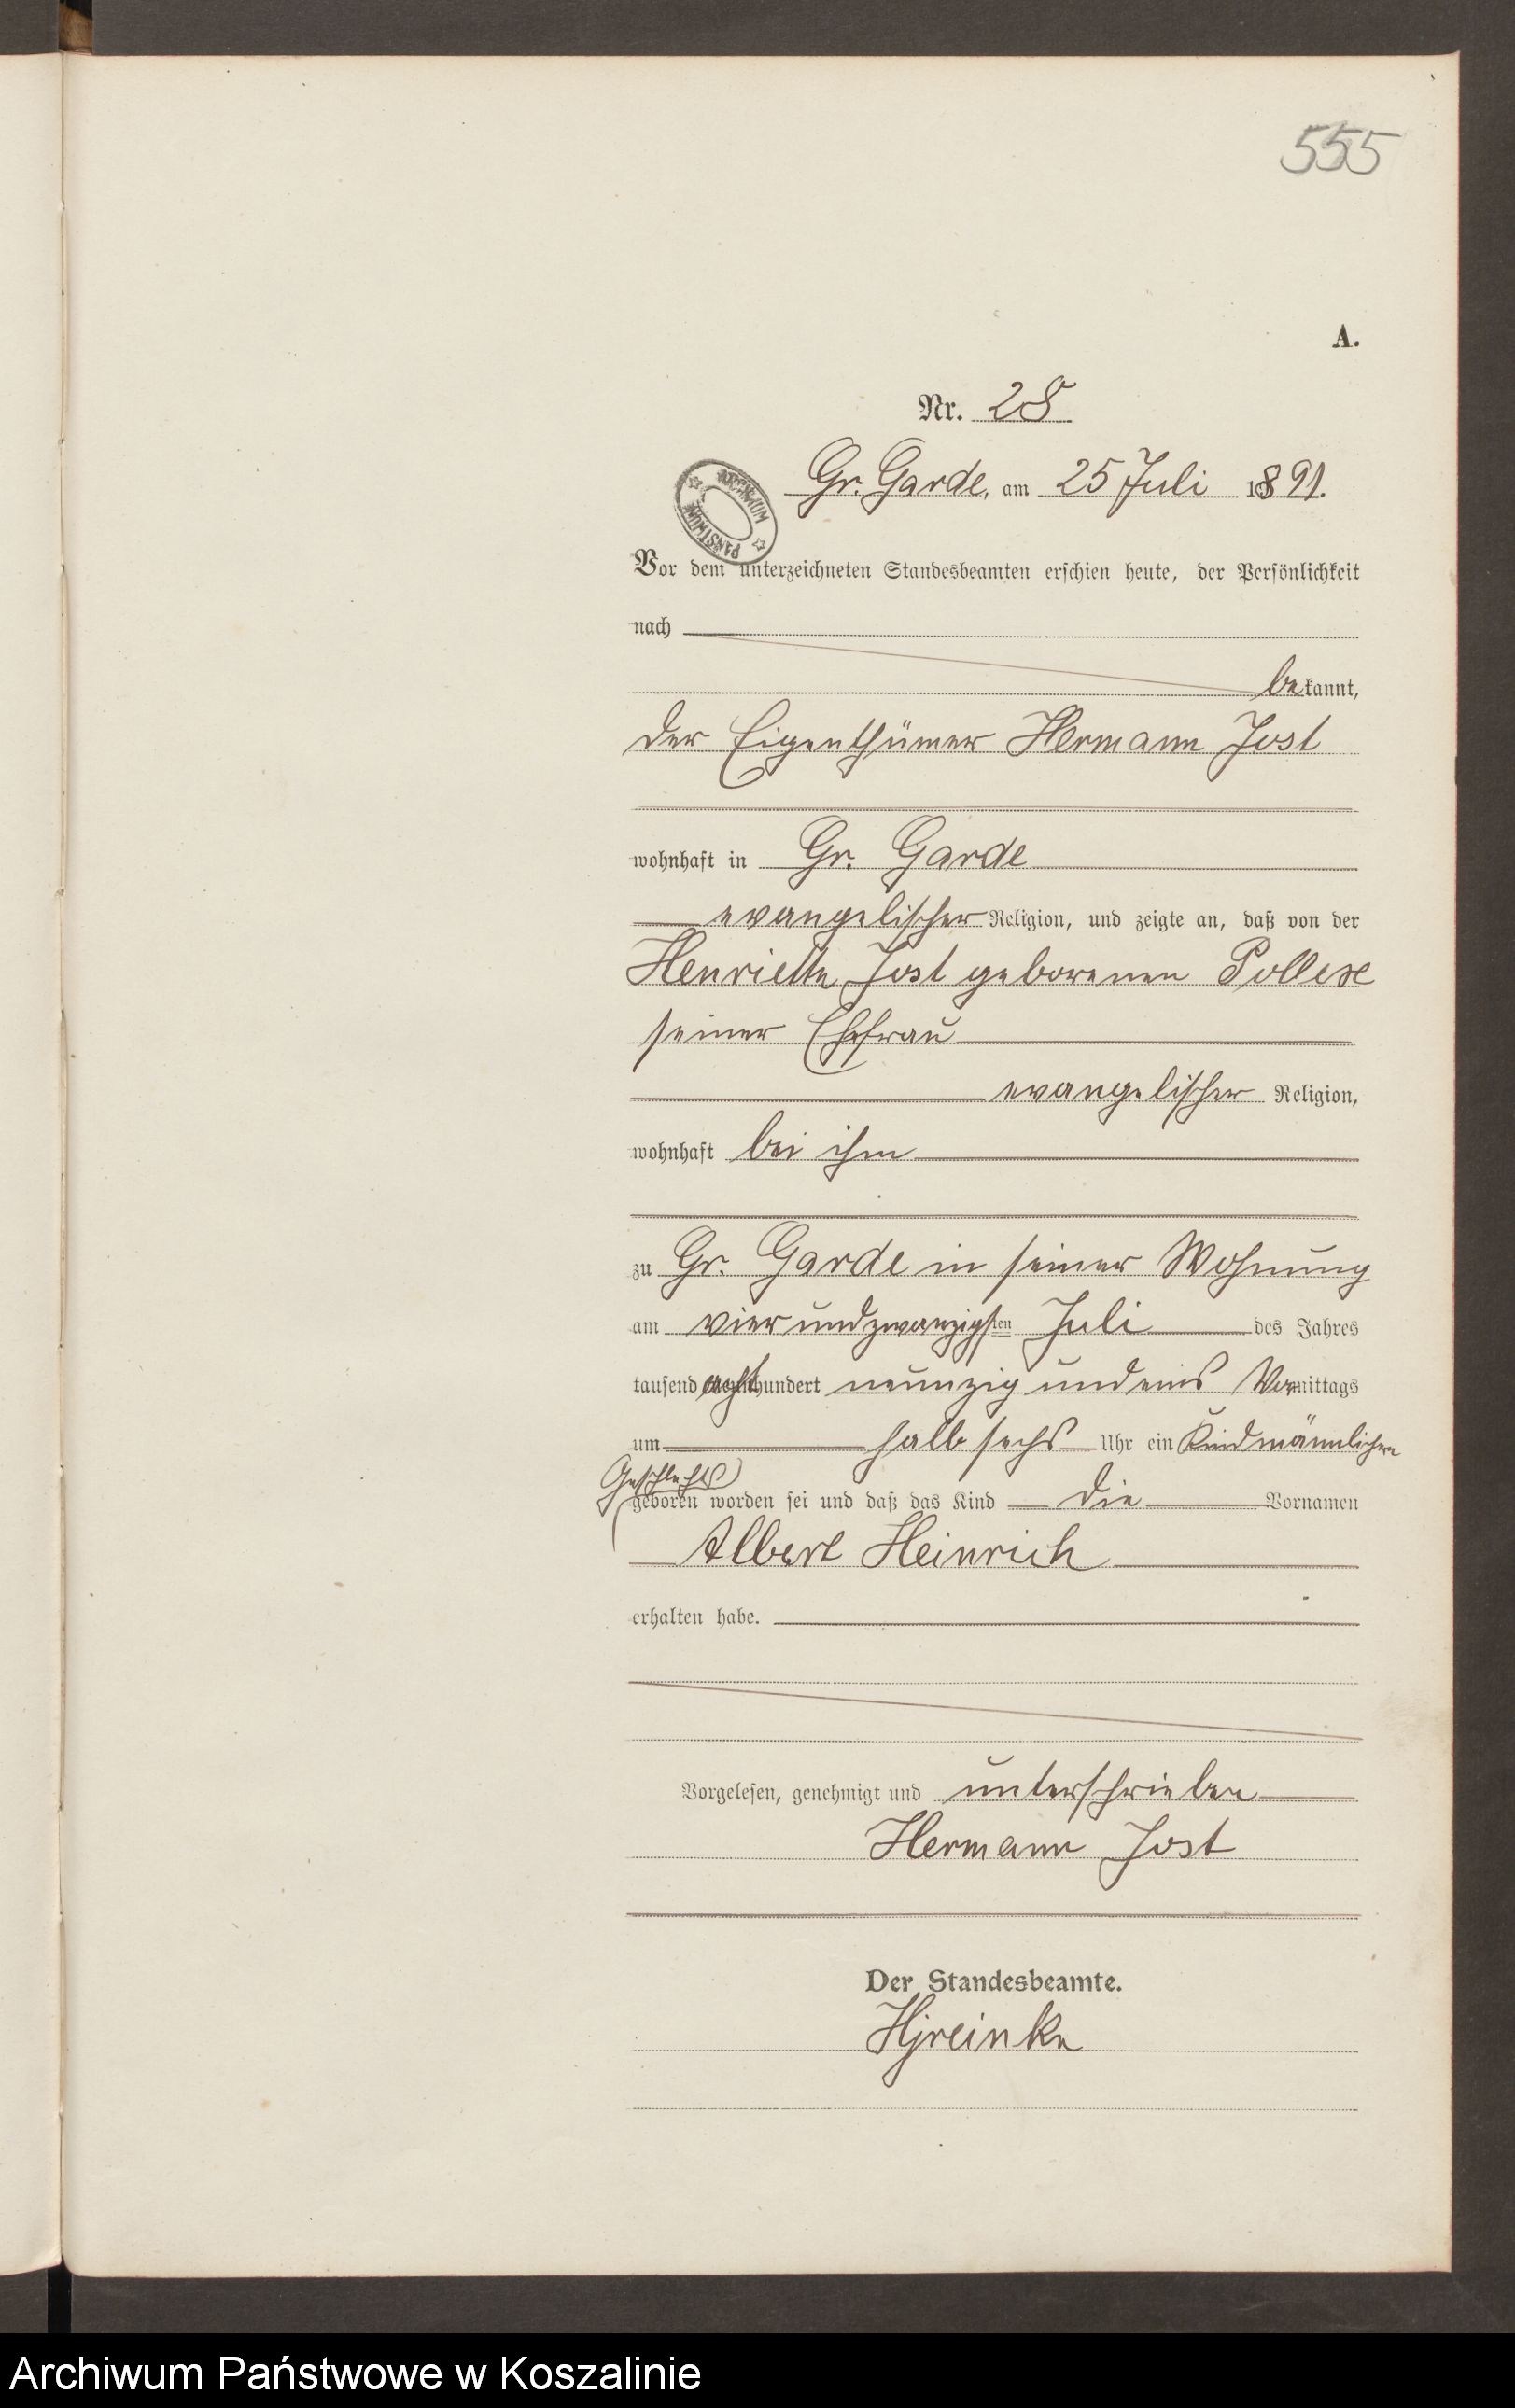 555
A.
Nr. 28
Gr. Garde, am 25 Juli 1891.
ARCHIWUM PAŃSTWOWE
Vor dem unterzeichneten Standesbeamten erschien heute, der Persönlichkeit
nach
bekannt,
der Eigenthümer Hermann Jost
wohnhaft in Gr. Garde
evangelischer Religion, und zeigte an, daß von der
Henriette Jost geborenen Pollex
seiner Ehefrau
evangelischer Religion,
wohnhaft bei ihm
zu Gr. Garde in seiner Wohnung
am vierundzwanzigsten Juli des Jahres
tausend achthundert neunzig und eins Vormittags
um halb sechs Uhr ein Kind männlichen
Geschlechts
geboren worden sei und daß das Kind die Vornamen
Albert Heinrich
erhalten habe.
Vorgelesen, genehmigt und unterschrieben
Hermann Jost
Der Standesbeamte.
Archiwum Państwowe w Koszalinie